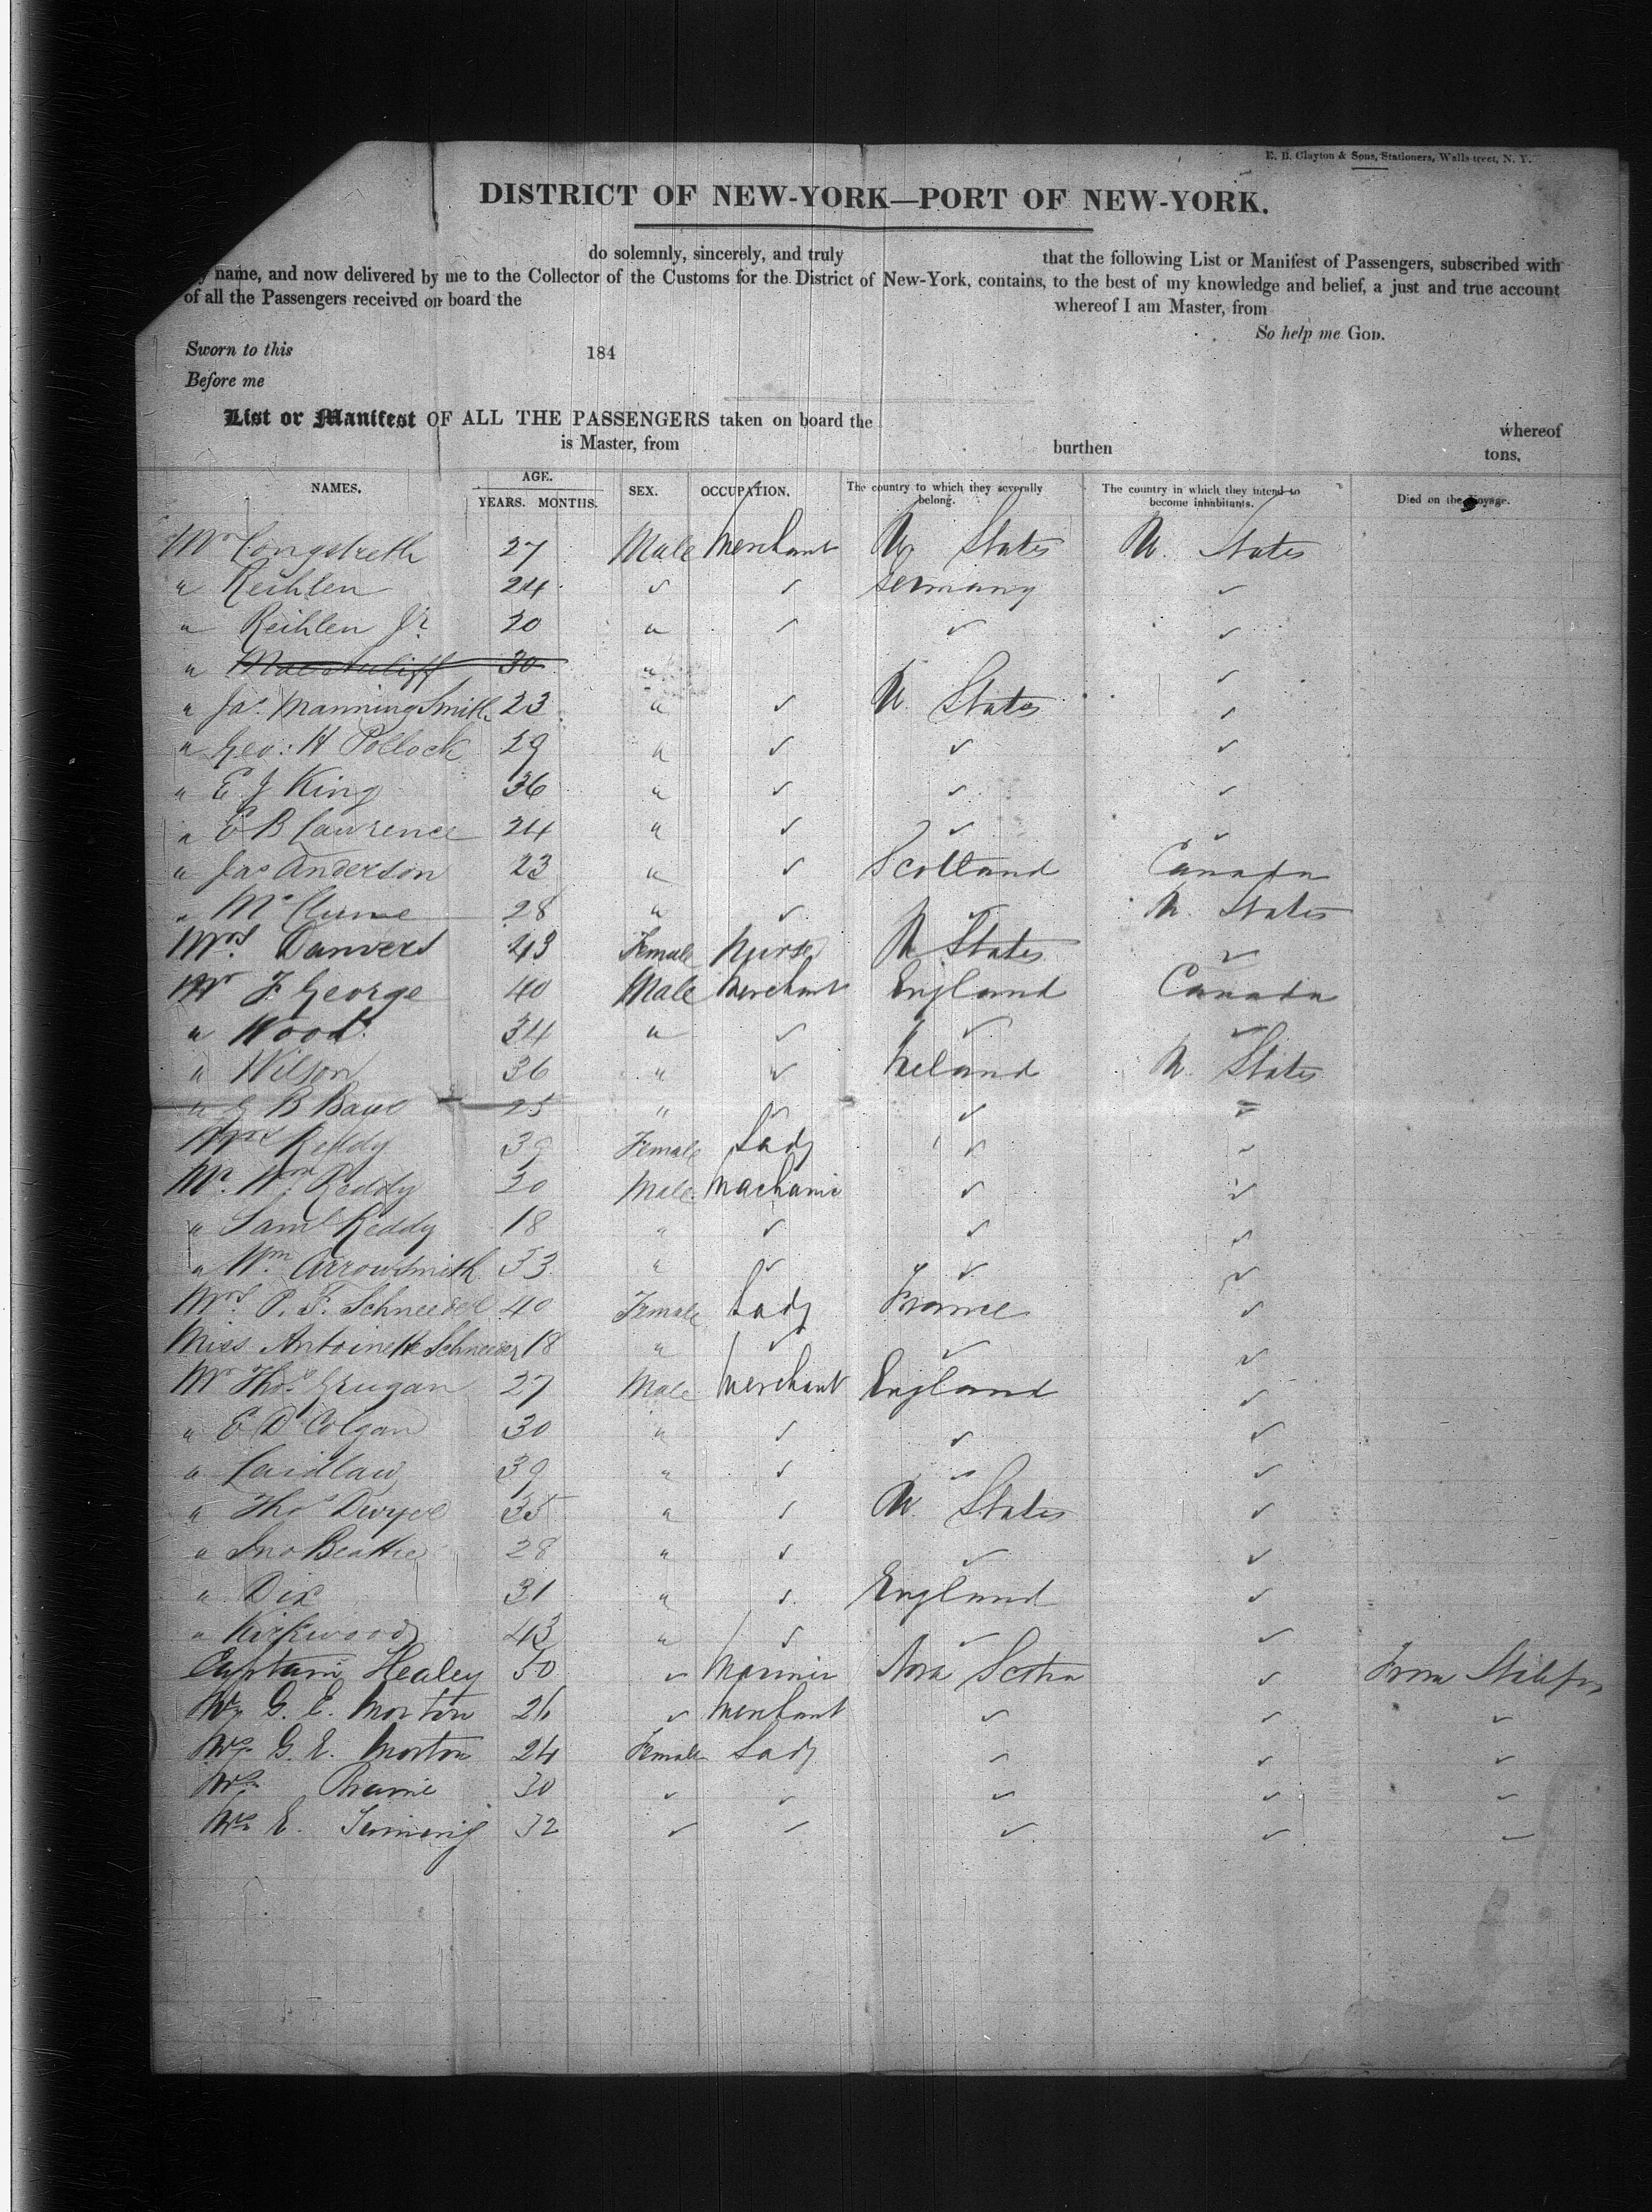 E. B. Clayton & Sons, Stationers, Wall-street, N. Y.
DISTRICT OF NEW-YORK—PORT OF NEW-YORK.
do solemnly, sincerely, and truly that the following List or Manifest of Passengers, subscribed with
name, and now delivered by me to the Collector of the Customs for the District of New-York, contains, to the best of my knowledge and belief, a just and true account
of all the Passengers received on board the whereof I am Master, from
So help me GOD.
Sworn to this 184
Before me
List or Manifest OF ALL THE PASSENGERS taken on board the whereof
is Master, from burthen tons.
NAMES. AGE. SEX. OCCUPATION. The country to which they severally belong. The country in which they intend to become inhabitants. Died on the Voyage.
YEARS. MONTHS.
Mr Longstreth 27 Male Merchant U. States U. States
" Reihlen 24 ✓ ✓ Germany ✓
" Reihlen Jr. 20 " ✓ ✓ ✓
" 30 " ✓
" Jas. Manning Smith 23 " ✓ U. States ✓
" Geo: H Pollock 29 " ✓ ✓ ✓
" E J King 36 " ✓ ✓ ✓
" E B Lawrence 24 " ✓ ✓ ✓
" Jas Anderson 23 " ✓ Scotland Canada
" McClune 28 " ✓ ✓ U. States
Mrs. Danvers 43 Female Nurse U States ✓
Mr F George 40 Male Merchant England Canada
" Wood 34 " ✓ ✓ ✓
" Wilson 36 " ✓ Ireland U. States
" B 25 " ✓ ✓ ✓
Mrs Reddy 39 Female Lady ✓ ✓
Mr. Wm. Reddy 20 Male Machanic ✓ ✓
" Saml Reddy 18 " ✓ ✓ ✓
" Wm. Arrowsmith 53 " ✓ ✓ ✓
Mrs. P. F. Schneider 40 Female Lady France ✓
Miss Antoinette Schneider 18 " ✓ ✓ ✓
Mr Thos. Grugan 27 Male Merchant England ✓
" E D Colgan 30 " ✓ ✓ ✓
" Laidlaw 39 " ✓ ✓ ✓
" Thos Dwyer 35 " ✓ U. States ✓
" Jno Beattie 28 " ✓ ✓ ✓
" Dix 31 " ✓ England ✓
" Kirkwood 43 " ✓ ✓ ✓
Captain Healey 50 ✓ Mariner Nova Scotia ✓ From
Mr G. E. Morton 26 ✓ Merchant ✓ ✓ ✓
Mrs. G. E. Morton 24 Female Lady ✓ ✓ ✓
Mrs. 30 ✓ ✓ ✓ ✓ ✓
Mrs E. 32 ✓ ✓ ✓ ✓ ✓